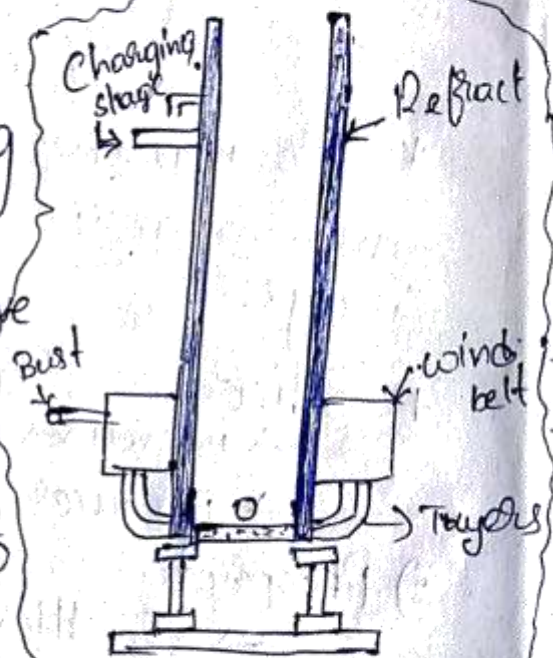 Charging
stage
Refract
Bust
wind
belt
Tuyers